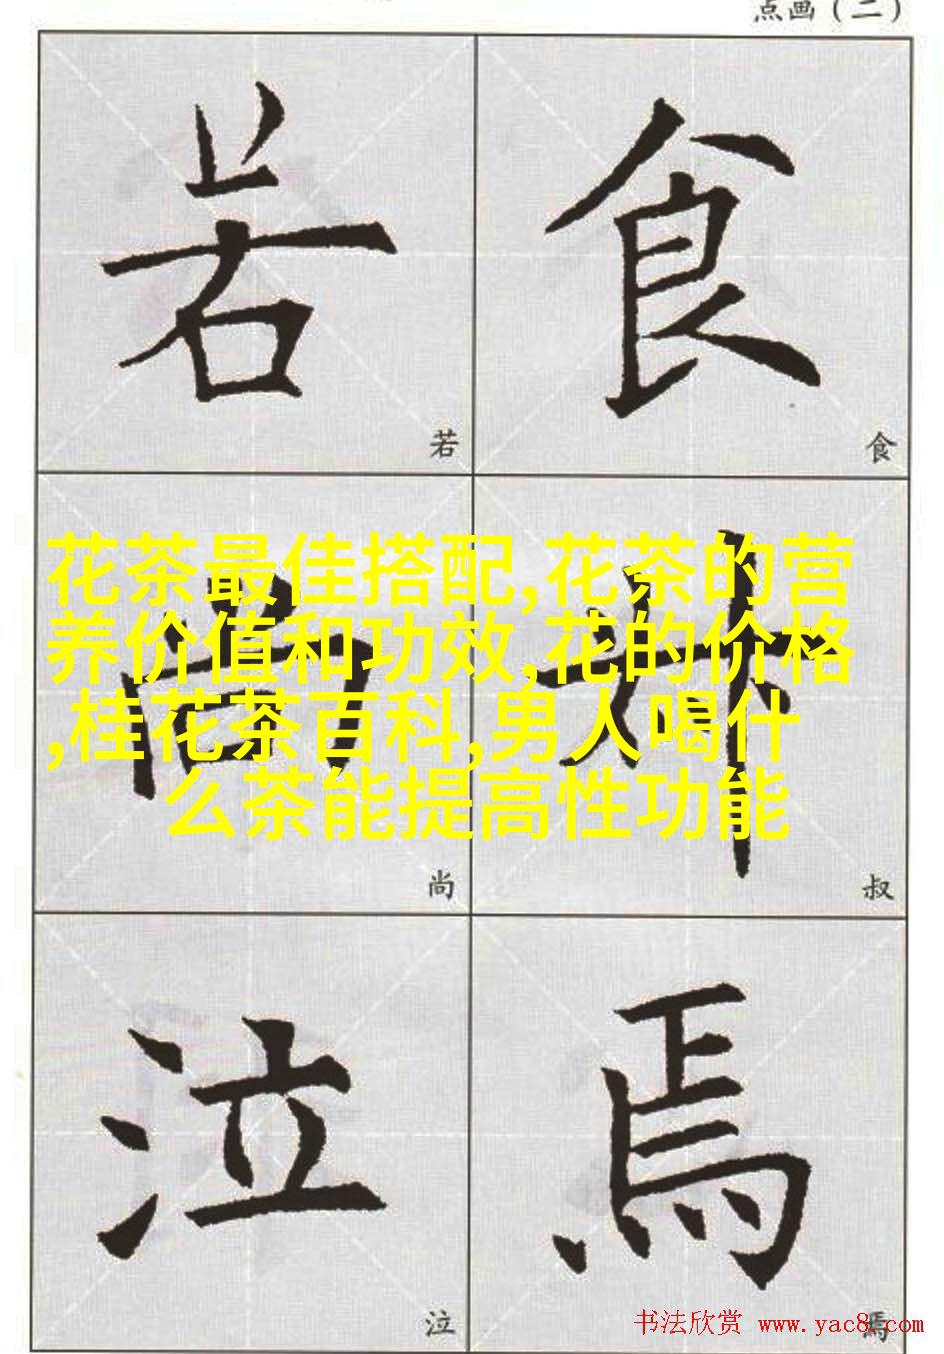 点画（二）
若 食
若 食
花茶最佳搭配,花茶的营
养价值和功效,花的价格
,桂花茶百科,男人喝什
么茶能提高性功能
尚 叔
尚 叔
泣 焉
泣 焉
书法欣赏 www.yac8.com